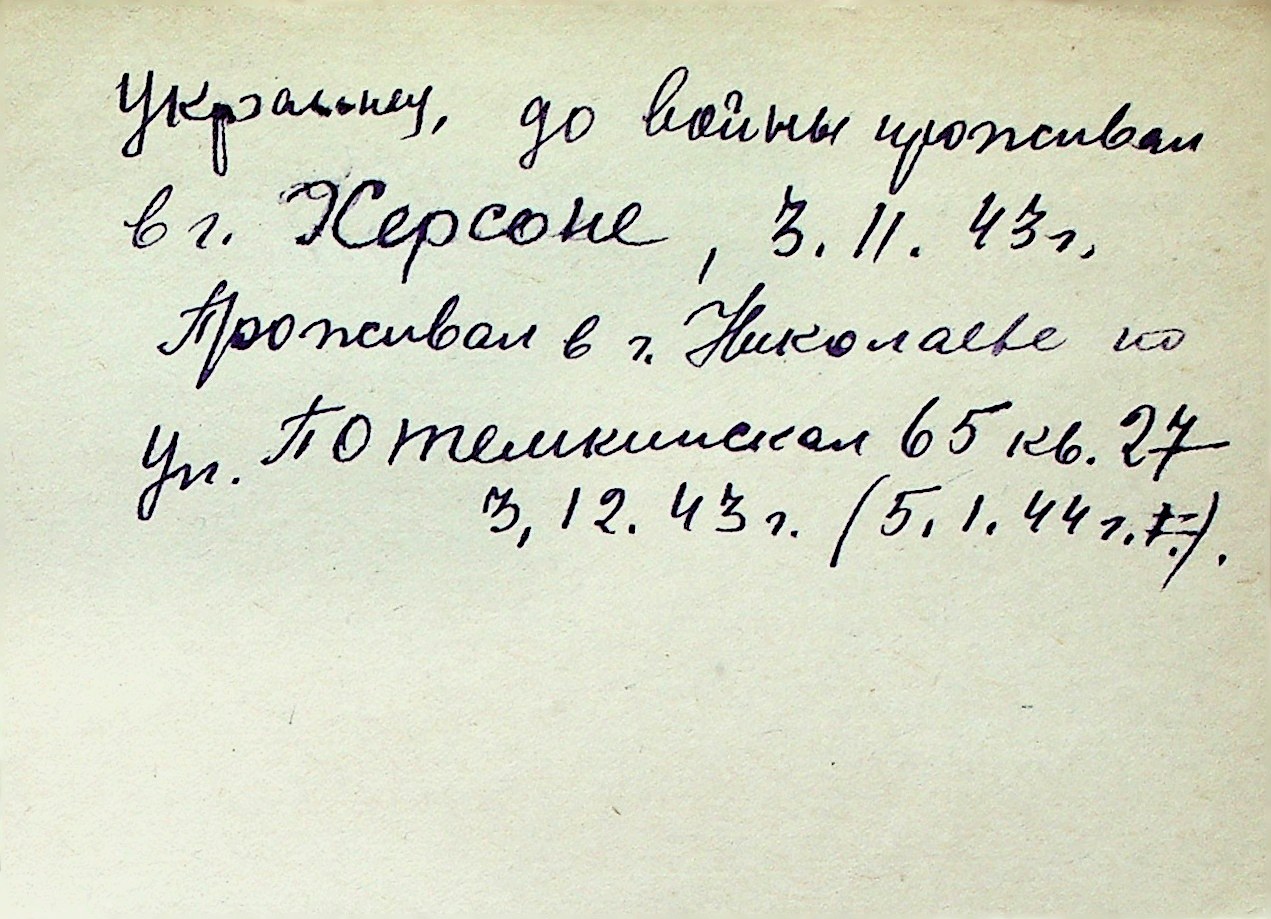 Украинец, до войны проживал
в г. Херсоне, 3.11.43г.
Проживал в г. Николаеве по
ул. Потемкинская 65 кв. 27
3,12.43г. (5.1.44г.).